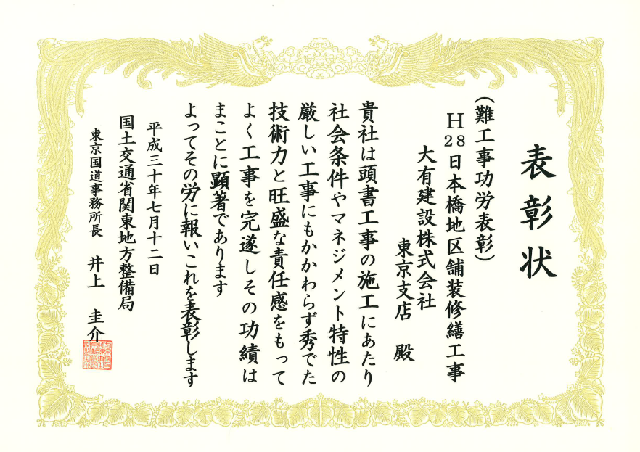 表彰状
(難工事功労表彰)
H28日本橋地区舗装修繕工事
大有建設株式会社
東京支店 殿
貴社は頭書工事の施工にあたり
社会条件やマネジメント特性の
厳しい工事にもかかわらず秀でた
技術力と旺盛な責任感をもって
よく工事を完遂しその功績は
まことに顕著であります
よってその労に報いこれを表彰します
平成三十年七月十二日
国土交通省関東地方整備局
東京国道事務所長 井上 圭介